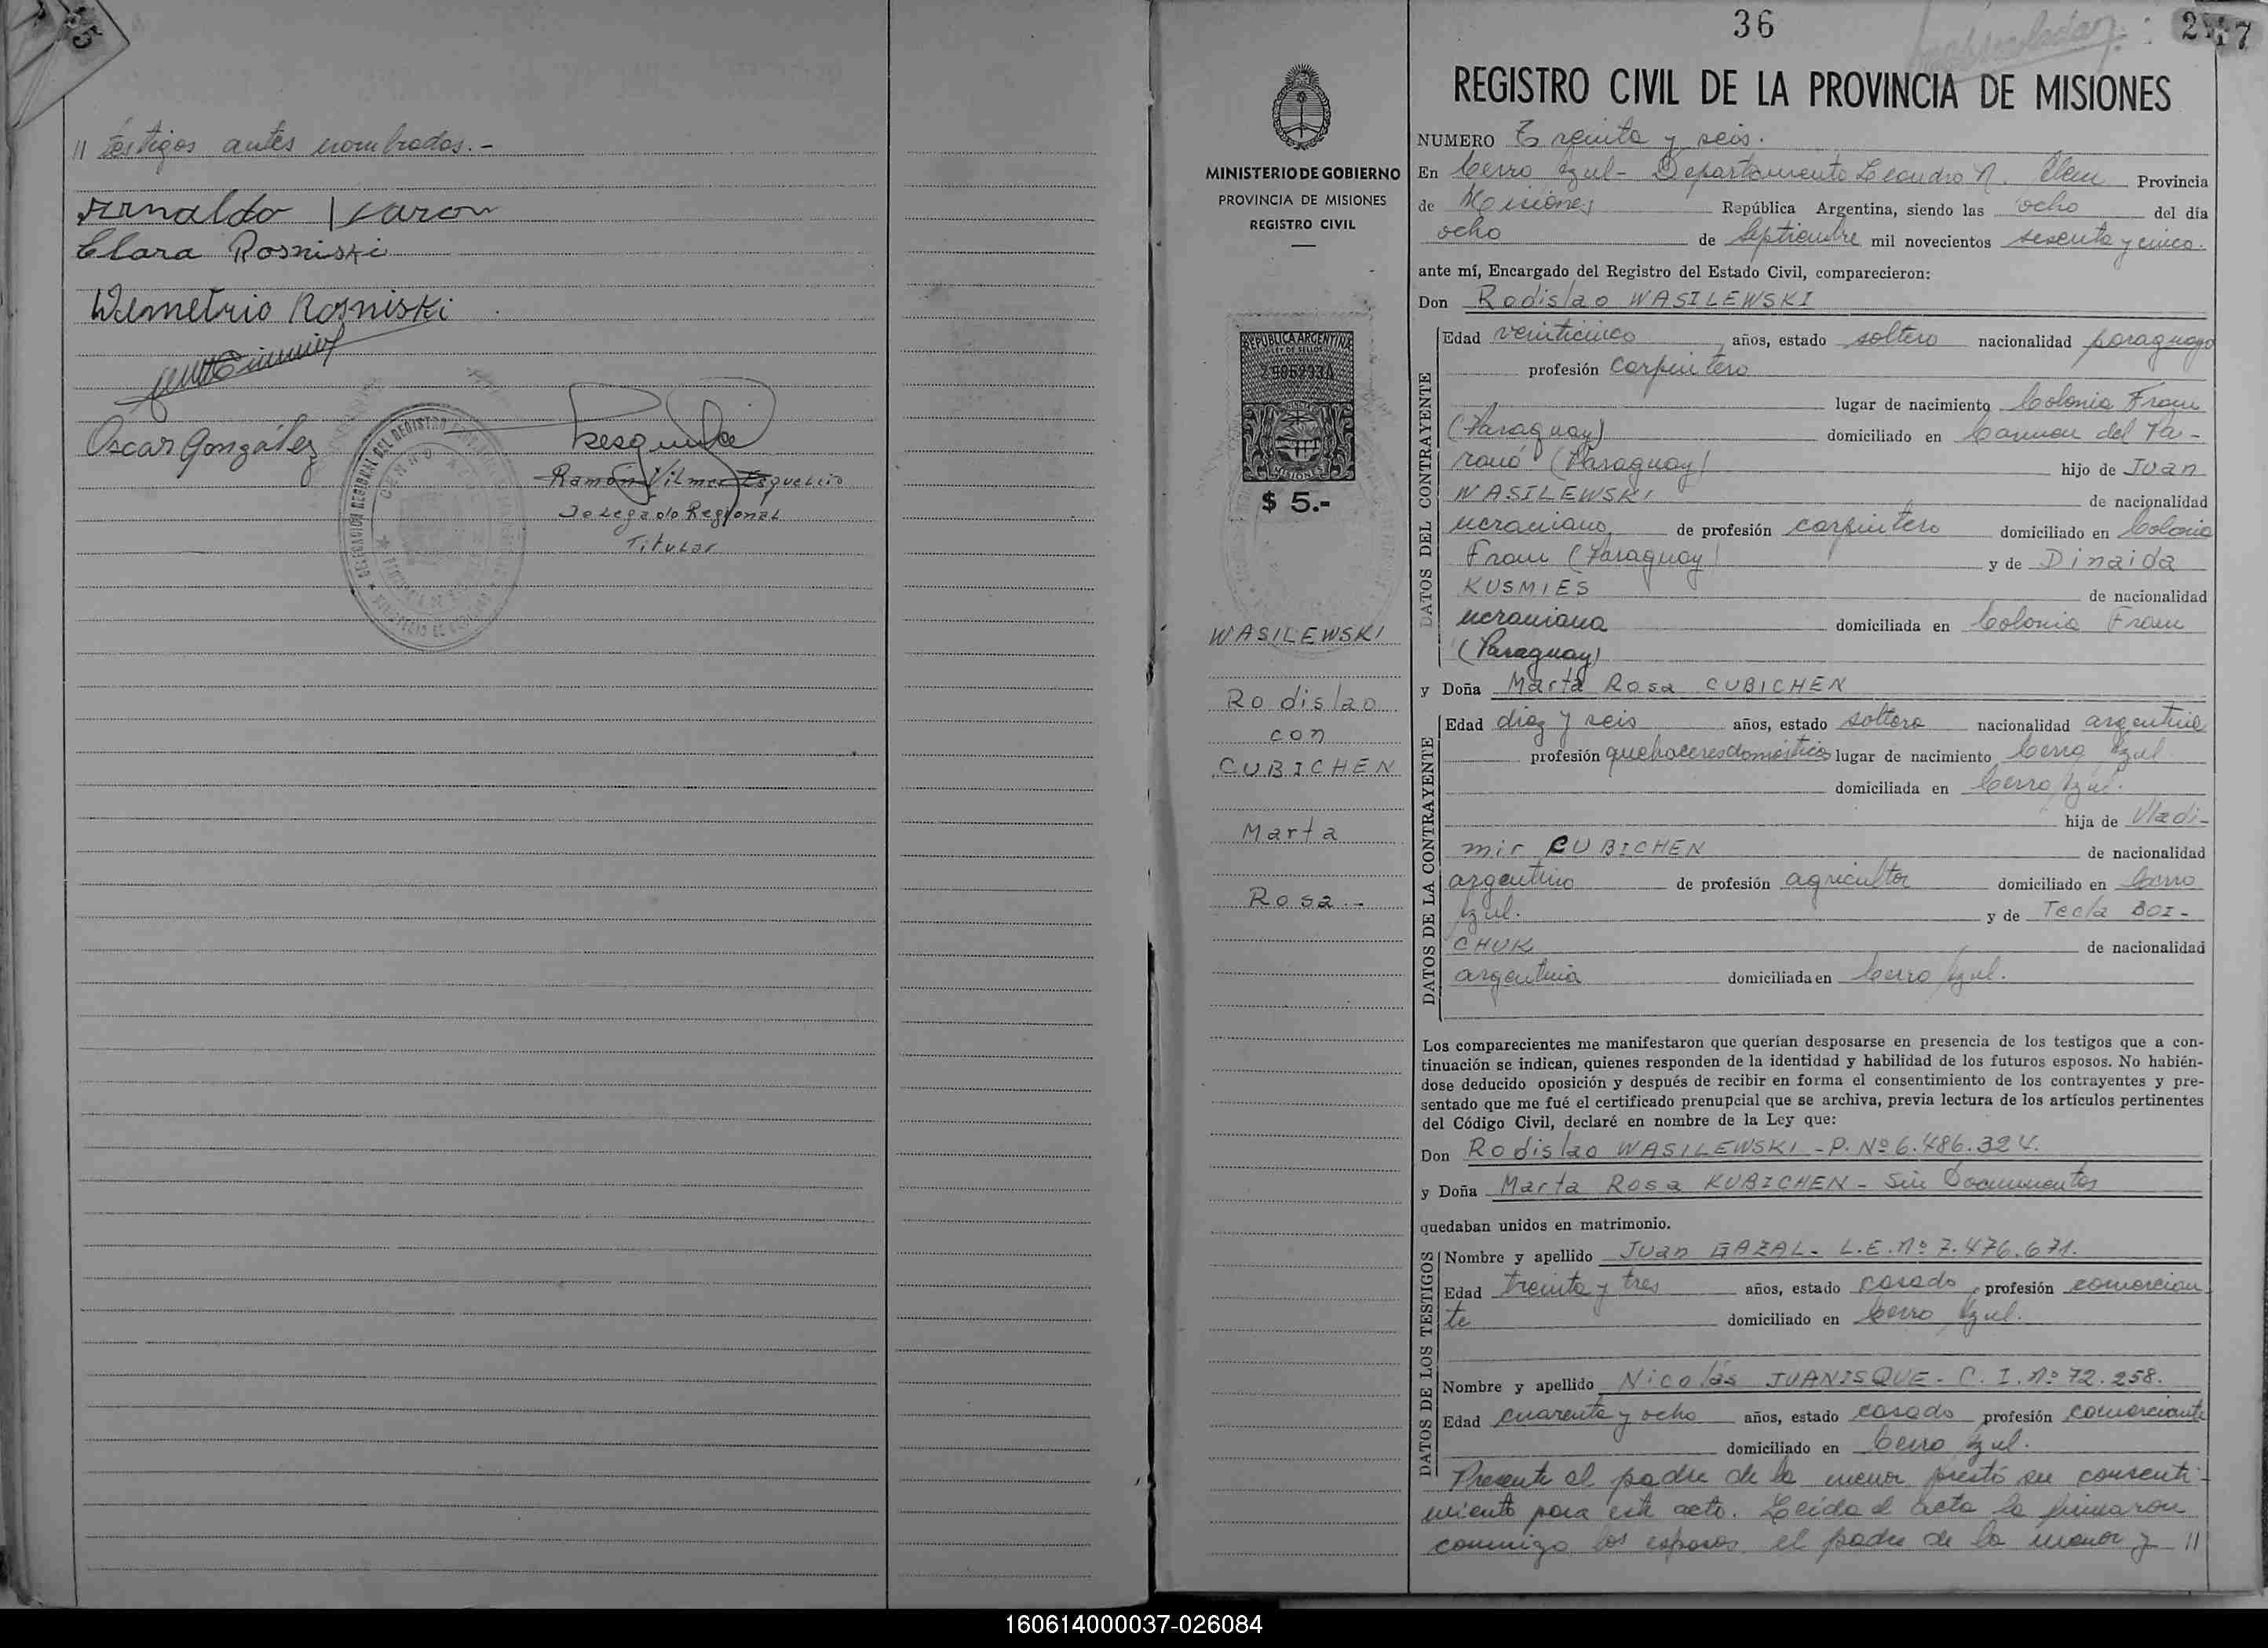 35
// testigos antes nombrados.-
Arnaldo Karon
Clara Rosniski
Demetrio Rosniski
Oscar González
Ramón Vilmar Esquelcio
Delegado Regional
Titular
36
247
REGISTRO CIVIL DE LA PROVINCIA DE MISIONES
MINISTERIO DE GOBIERNO
PROVINCIA DE MISIONES
REGISTRO CIVIL
REPUBLICA ARGENTINA
LEY DE SELLOS
MISIONES
$ 5.-
WASILEWSKI
Rodislao
con
CUBICHEN
Marta
Rosa.-
NUMERO Treinta y seis.
En Cerro Azul- Departamento Leandro N. Alem Provincia
de Misiones República Argentina, siendo las ocho del día
ocho de Septiembre mil novecientos sesenta y cinco.
ante mí, Encargado del Registro del Estado Civil, comparecieron:
Don Rodislao WASILEWSKI
DATOS DEL CONTRAYENTE
Edad veinticinco años, estado soltero nacionalidad paraguayo
profesión Carpintero
lugar de nacimiento Colonia Fram
(Paraguay) domiciliado en Carmen del Pa-
raná (Paraguay) hijo de Juan
WASILEWSKI de nacionalidad
ucraniano de profesión carpintero domiciliado en Colonia
Fram (Paraguay) y de Dinaida
KUSMIES de nacionalidad
ucraniana domiciliada en Colonia Fram
(Paraguay)
y Doña Marta Rosa CUBICHEN
DATOS DE LA CONTRAYENTE
Edad diez y seis años, estado soltera nacionalidad argentina
profesión quehaceres domésticos lugar de nacimiento Cerro Azul
domiciliada en Cerro Azul.
hija de Vladi-
mir CUBICHEN de nacionalidad
argentino de profesión agricultor domiciliado en Cerro
Azul. y de Tecla BOI-
CHUK de nacionalidad
argentina domiciliada en Cerro Azul.
Los comparecientes me manifestaron que querían desposarse en presencia de los testigos que a con-
tinuación se indican, quienes responden de la identidad y habilidad de los futuros esposos. No habién-
dose deducido oposición y después de recibir en forma el consentimiento de los contrayentes y pre-
sentado que me fué el certificado prenupcial que se archiva, previa lectura de los artículos pertinentes
del Código Civil, declaré en nombre de la Ley que:
Don Rodislao WASILEWSKI - P. Nº 6.486.324.
y Doña Marta Rosa KUBICHEN - Sin Documentos
quedaban unidos en matrimonio.
DATOS DE LOS TESTIGOS
Nombre y apellido Juan GAZAL- L.E. Nº 7.476.671.
Edad treinta y tres años, estado casado, profesión comercian
te domiciliado en Cerro Azul.
Nombre y apellido Nicolás JUANISQUE - C. I. Nº 72.258.
Edad cuarenta y ocho años, estado casado profesión comerciante
domiciliado en Cerro Azul.
Presente el padre de la menor prestó su consenti-
miento para este acto. Leida el acta la firmaron
conmigo los esposos, el padre de la menor y //
160614000037-026084